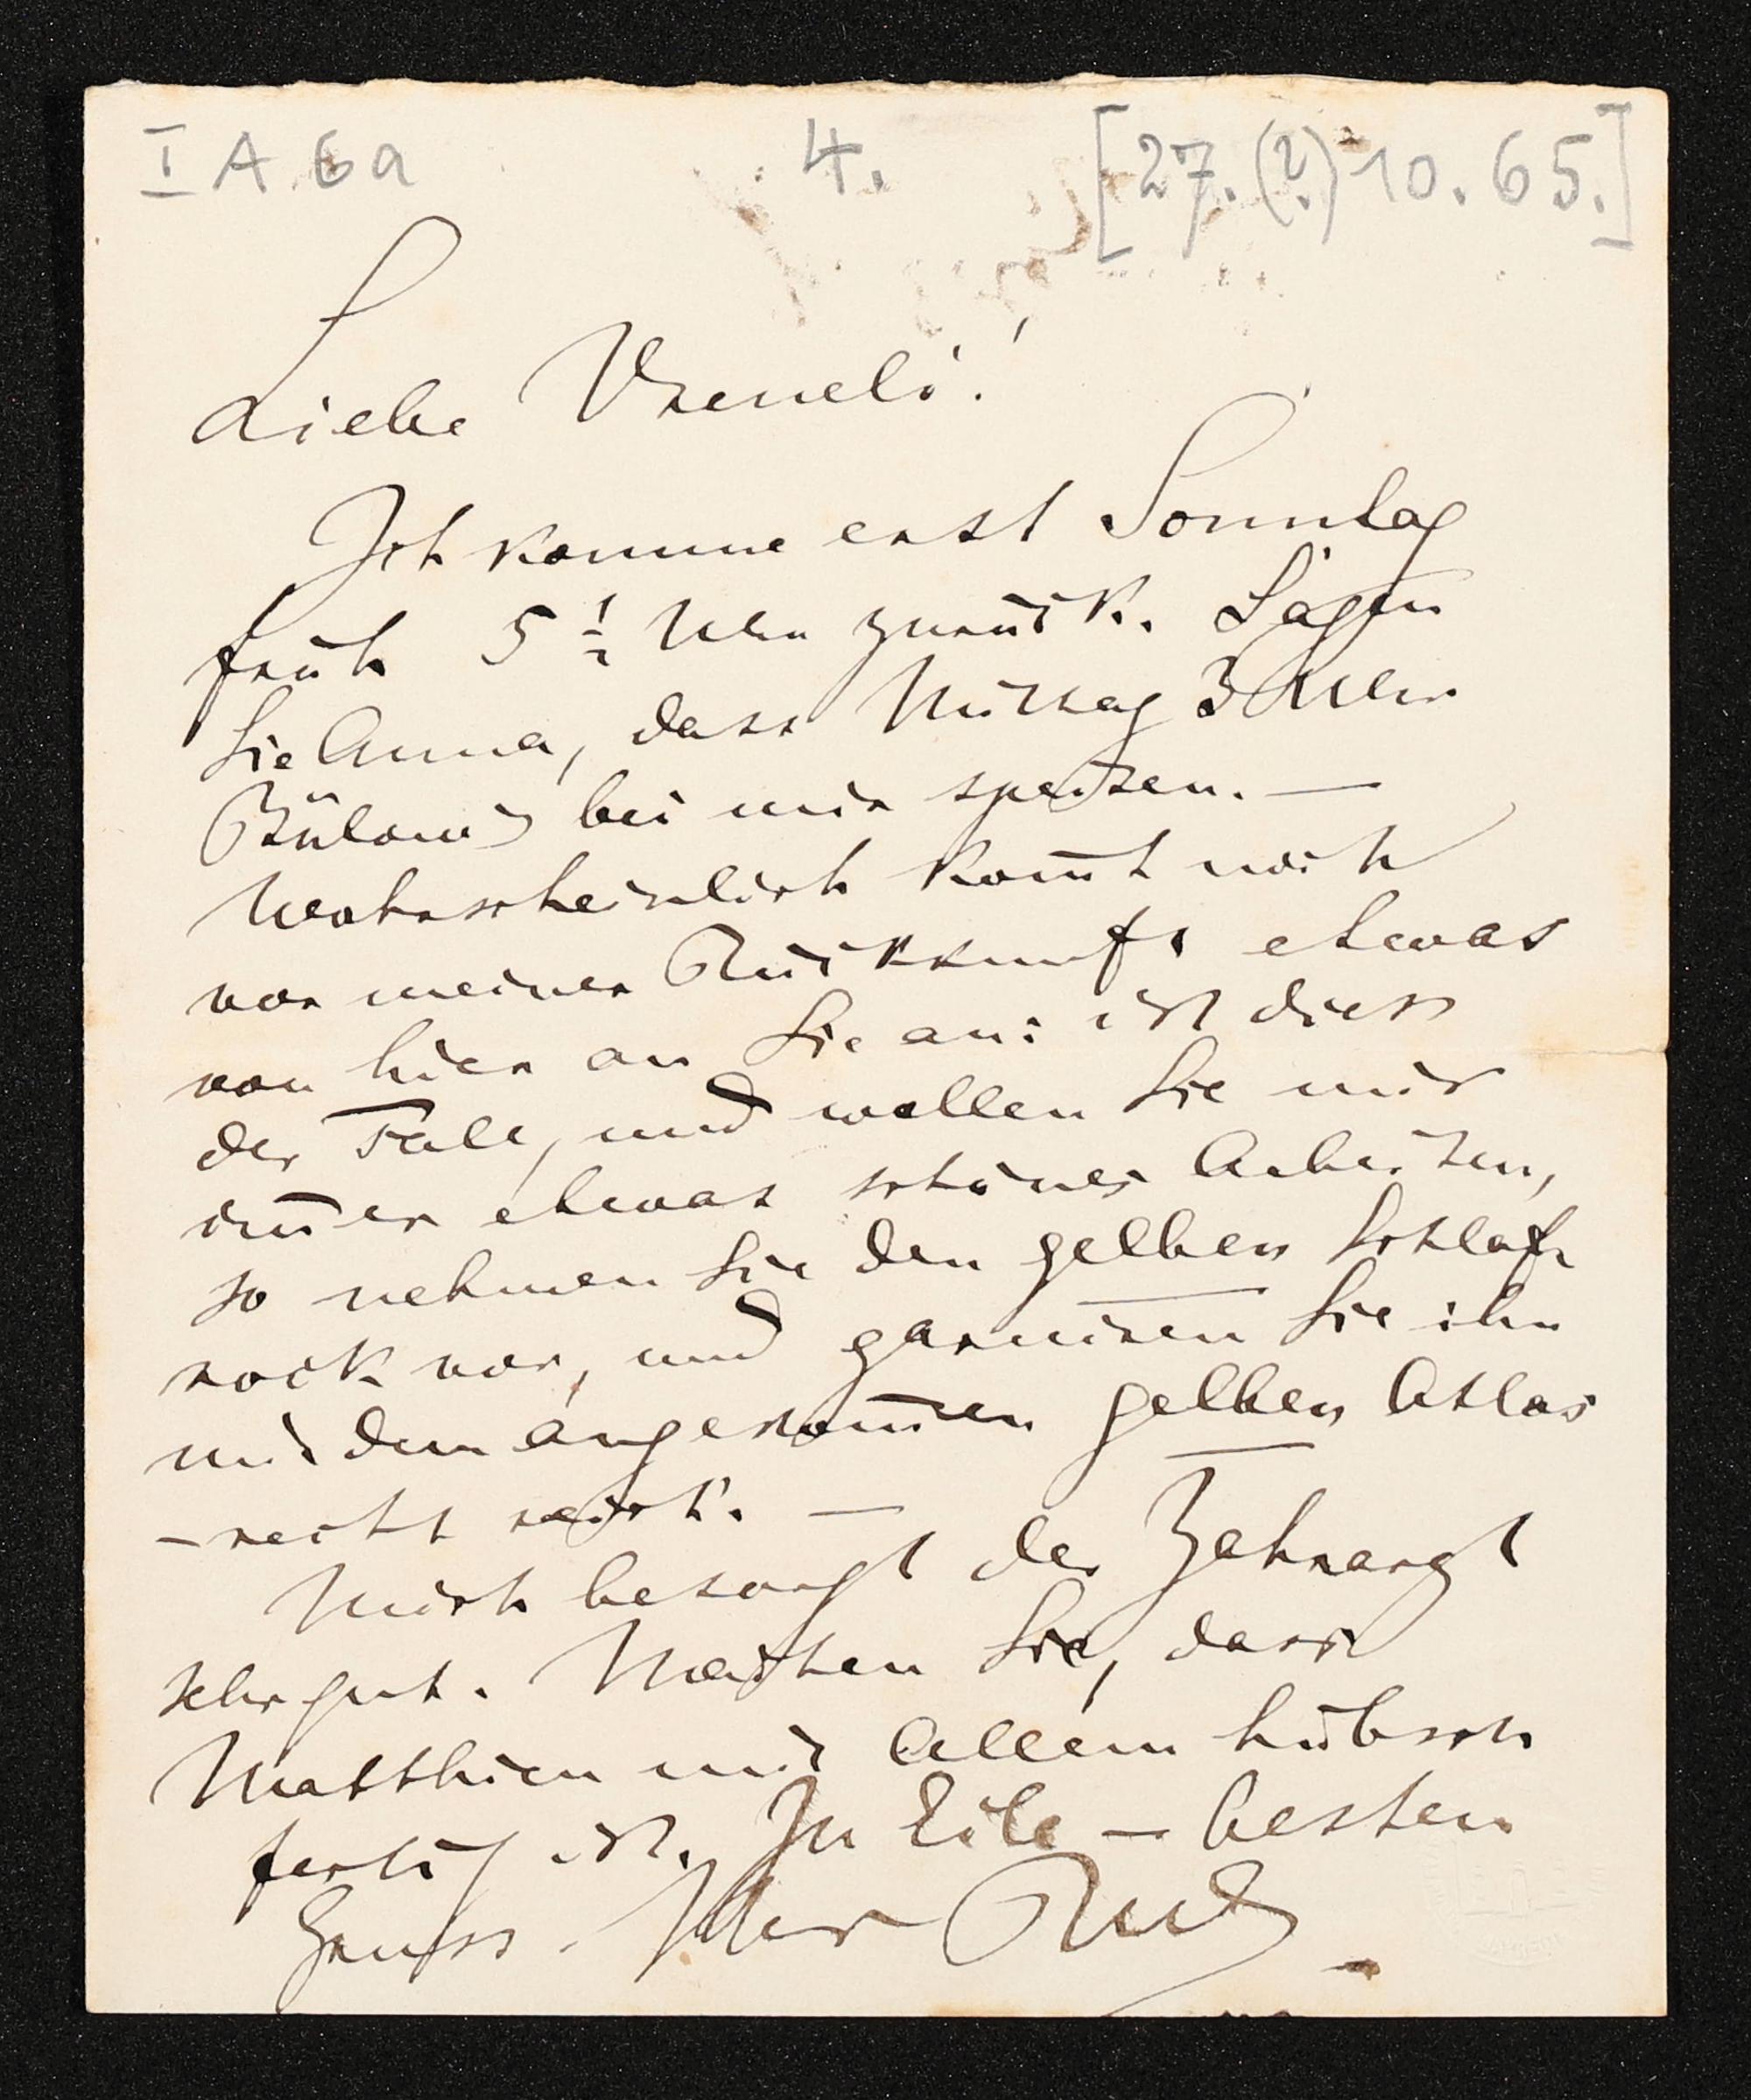 I A 6a 4. [27.(?)10.65.]
Liebe Vreneli!
Ich komme erst Sonntag
früh 5 1/2 Uhr zurück. Sagen
Sie Anna, dass Mittag 3 Uhr
Bülow's bei mir speisen. —
Wahrscheinlich kom̅t noch
vor meiner Rückkunft etwas
von hier an Sie an: ist diess
der Fall, und wollen Sie mir
im̅er etwas schönes arbeiten,
so nehmen Sie den gelben Schlaf-
rock vor, und garniren Sie ihn
mit dem angekom̅nen gelben Atlas
– recht reich. —
Mich besorgt der Zahnarzt
sehr gut. Machen Sie, dass
Matthieu mit Allem hübsch
fertig ist. In Eile – besten
Gruss. Ihr R